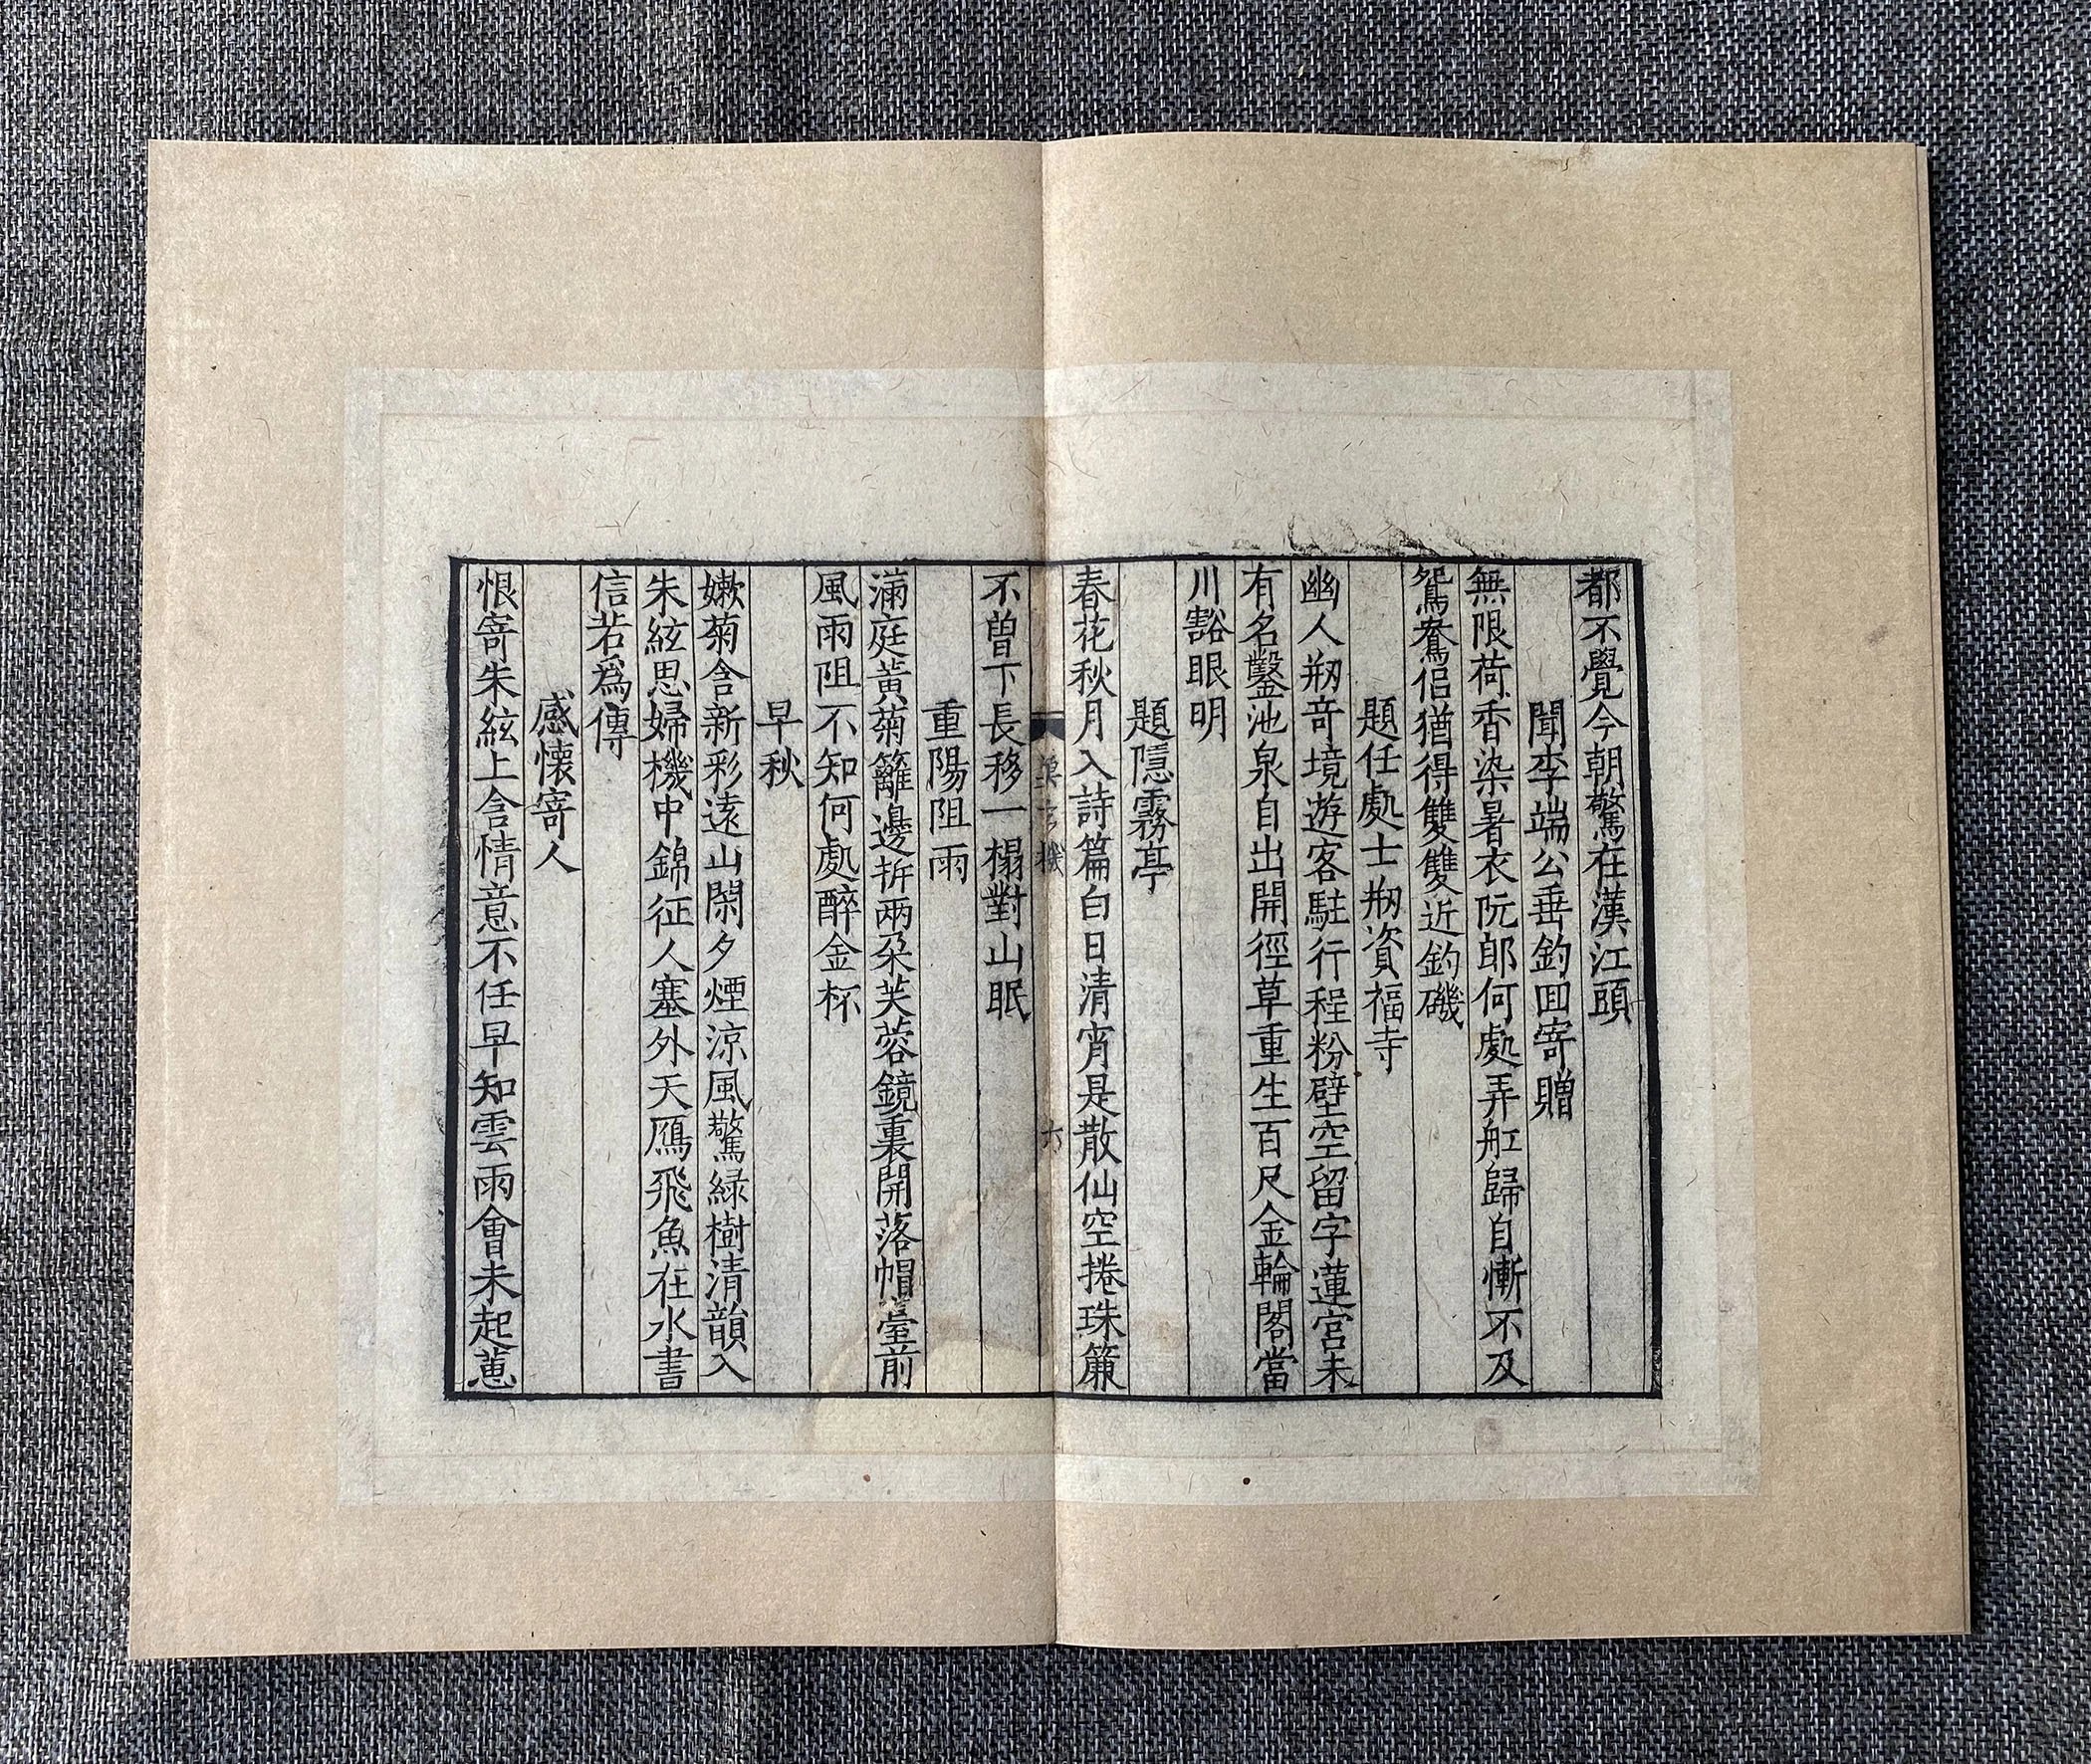 都不覺今朝驚在漢江頭
聞李端公垂釣回寄贈
無限荷香染暑衣阮郎何處弄舡歸自慚不及
鴛鴦侶猶得雙雙近釣磯
題任處士剏資福寺
幽人剏奇境遊客駐行程粉壁空留字蓮宮未
有名鑿池泉自出開徑草重生百尺金輪閣當
川豁眼明
題隱霧亭
春花秋月入詩篇白日清宵是散仙空捲珠簾
魚玄機
六
不曾下長移一榻對山眠
重陽阻雨
滿庭黃菊籬邊拆兩朵芙蓉鏡裏開落帽臺前
風雨阻不知何處醉金杯
早秋
嫰菊含新彩遠山閑夕煙涼風驚綠樹清韻入
朱絃思婦機中錦征人塞外天鴈飛魚在水書
信若為傳
感懷寄人
恨寄朱絃上含情意不任早知雲雨會未起蕙